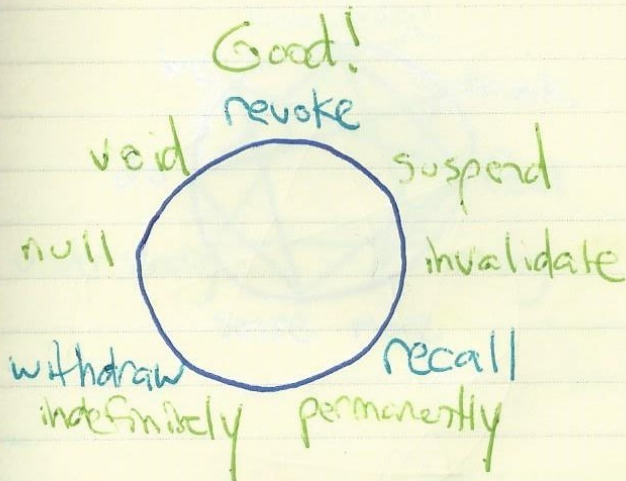 Good!
revoke
void suspend
null invalidate
withdraw recall
indefinitely permanently